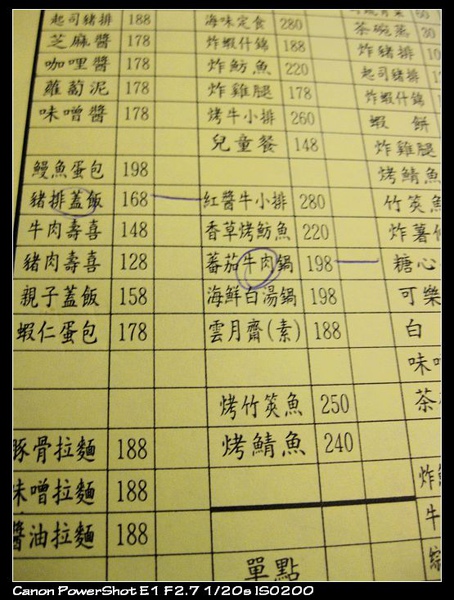 起司豬排 188
芝麻醬 178
咖哩醬 178
蘿蔔泥 178
味噌醬 178
鰻魚蛋包 198
豬排蓋飯 168
牛肉壽喜 148
豬肉壽喜 128
親子蓋飯 158
蝦仁蛋包 178
豚骨拉麵 188
味噌拉麵 188
醬油拉麵 188
海味定食 280
炸蝦什錦 188
炸魴魚 220
炸雞腿 178
烤牛小排 260
兒童餐 148
紅醬牛小排 280
香草烤魴魚 220
蕃茄牛肉鍋 198
海鮮白湯鍋 198
雲月齋(素) 188
烤竹筴魚 250
烤鯖魚 240
單點
茶碗蒸
炸豬排
起司豬排
炸蝦什錦
蝦餅
炸雞腿
烤鯖魚
竹筴魚
炸薯
糖心
可樂
白
味
茶
炸
牛
Canon PowerShot E1 F2.7 1/20s ISO200